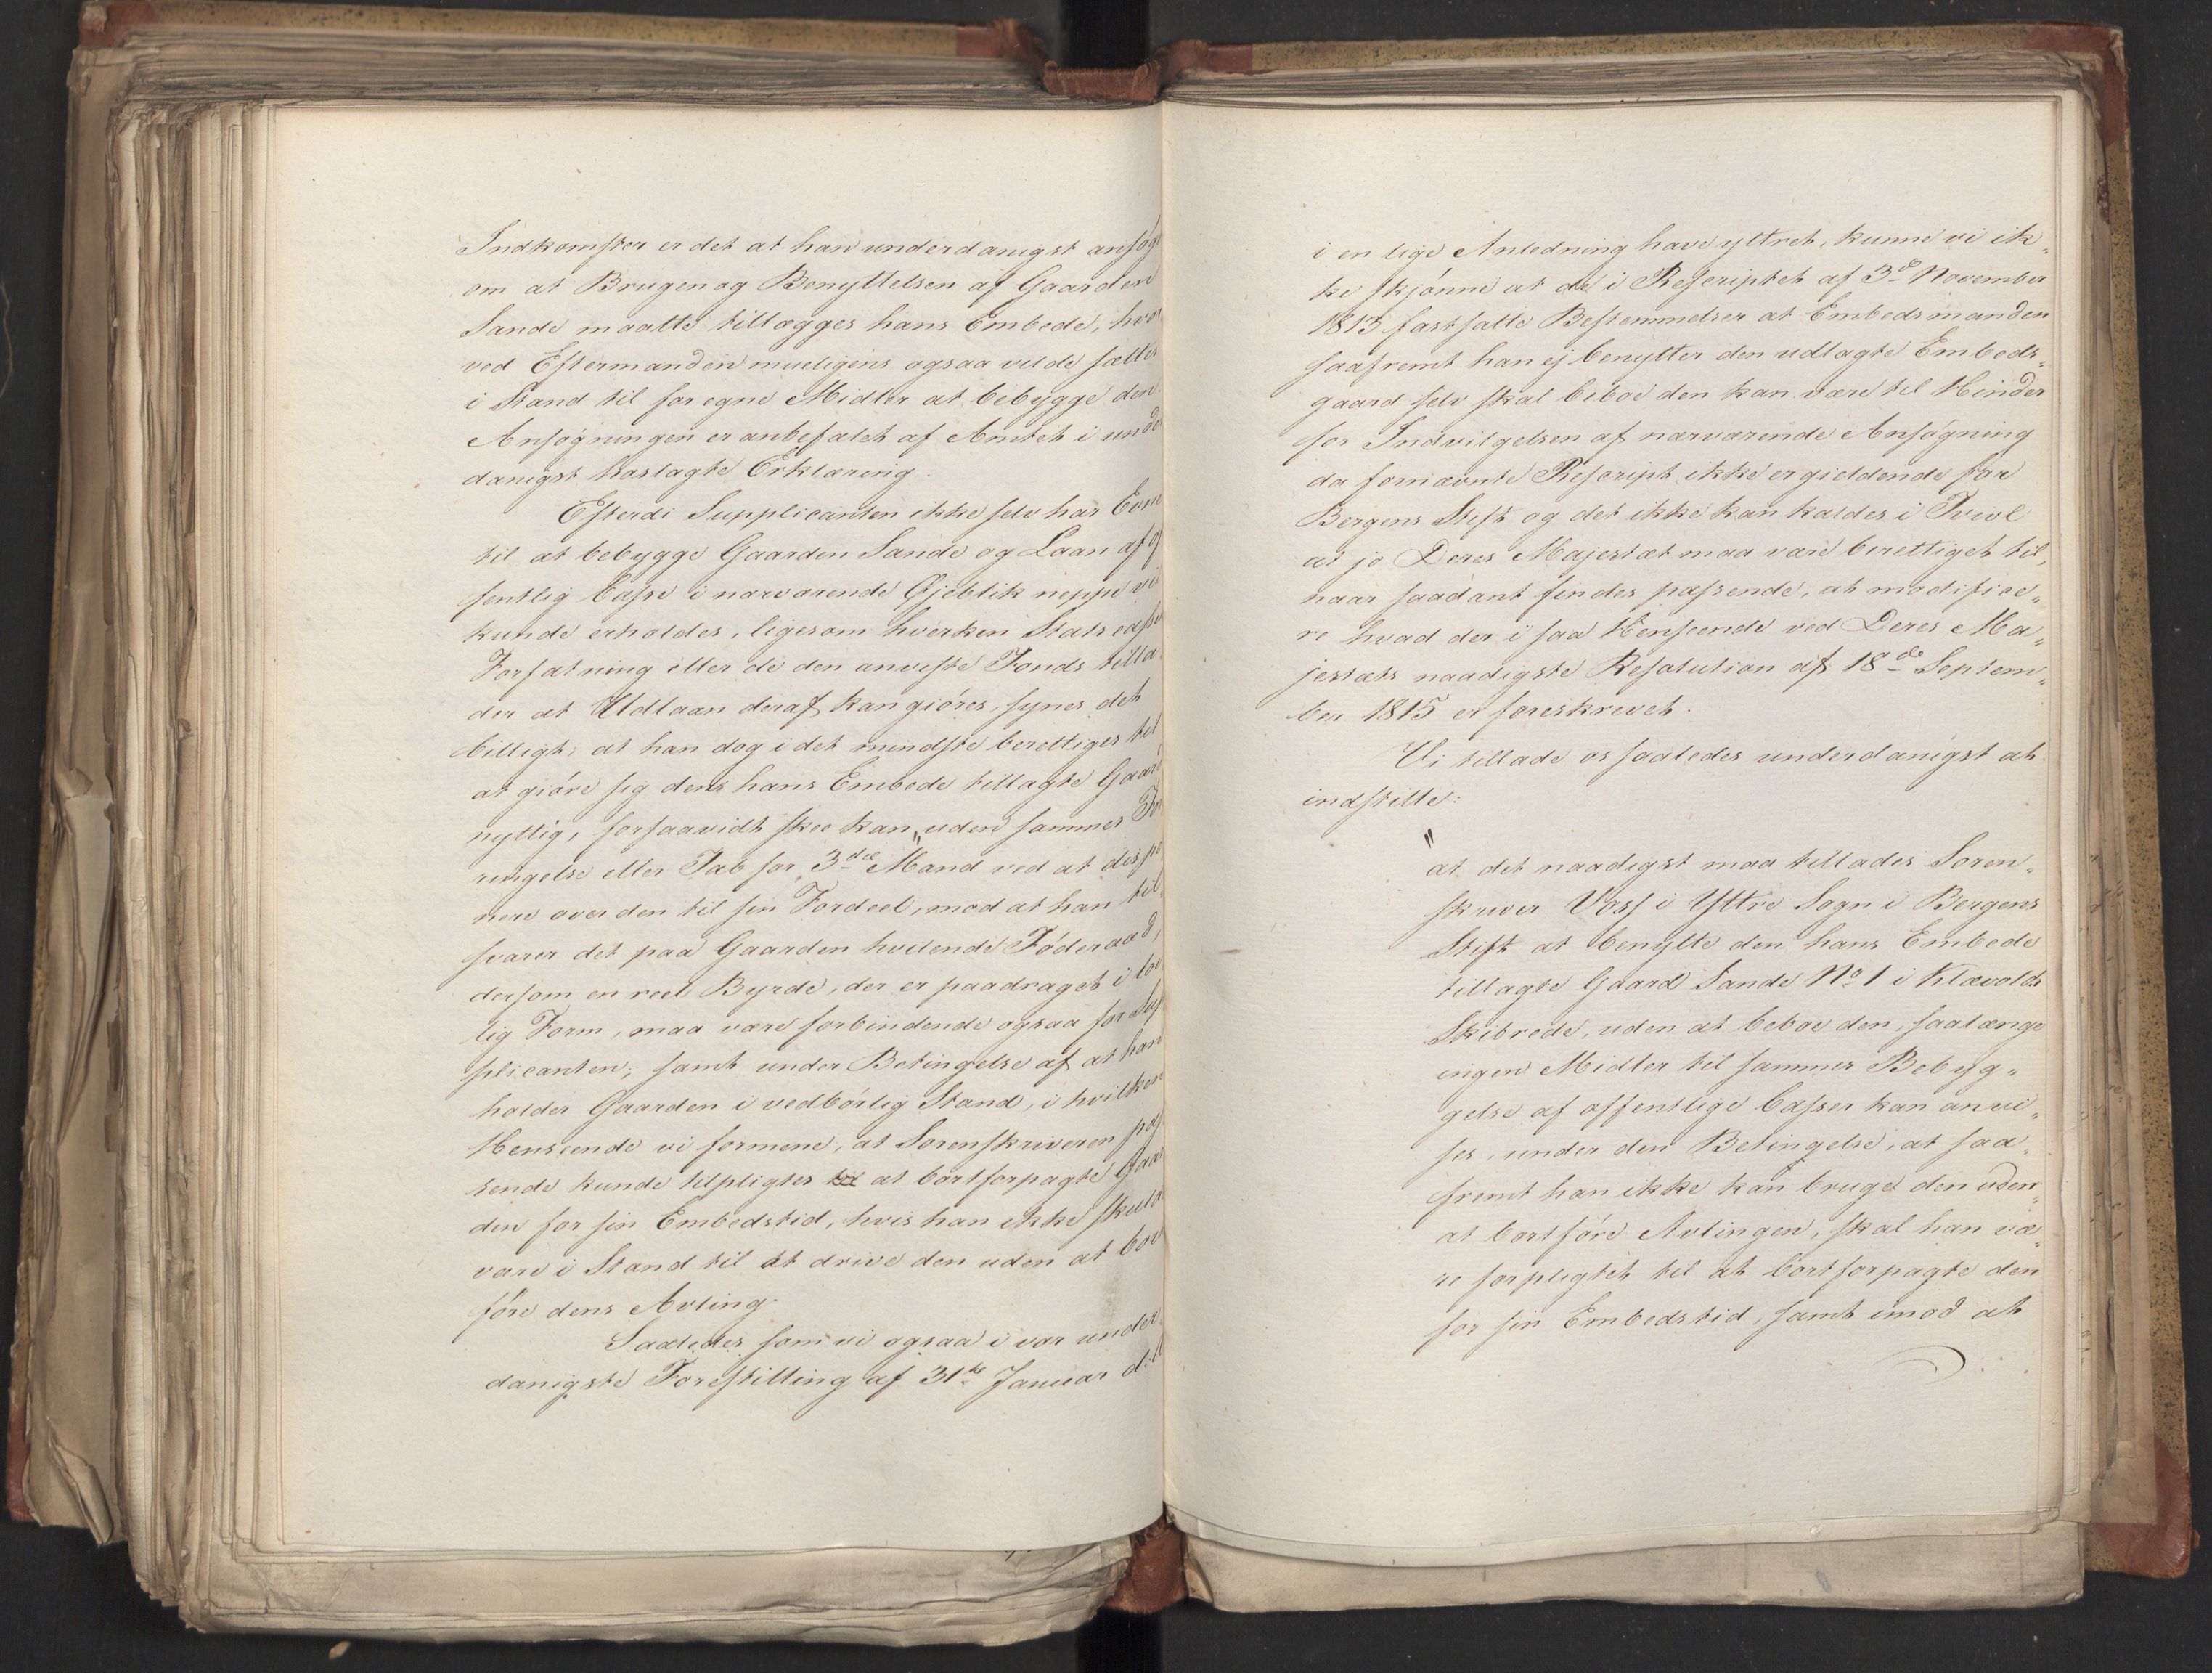 Indkomster er det at han underdanigst ansøg
om at Brugen og Benyttelsen af Gaarden
Sande maatte tillægges hans Embede, hvor
ved Eftermanden mueligens ogsaa vilde sættes
i Stand til for egne Midler at bebygge den.
Ansøgningen er anbefalet af Amtet i unde
danigst hoslagte Erklæring.
Efterdi Supplicanten ikke selv har Evne
til at bebygge Gaarden Sande og Laan af of
fentlig Casse i nærværende Øjeblik neppe vil
kunde erholdes, ligesom hverken Statscasse
Forfatning eller de den anviste Fonds tilla
der at Udlaan deraf kan giøres, synes det
billigt, at han dog i det mindste berettiges til
at giøre sig dens hans Embede tillagte Gaard
nyttig, forsaavidt skee kan, uden sammes For
ringelse eller Tab for 3die Mand ved at dispo
nere over den til sin Fordeel, mod at han til
svarer det paa Gaarden hvilende Føderaad,
dersom en reel Byrde, der er paadraget i lov
lig Form, maa være forbindende ogsaa for Sup
plicanten; samt under Betingelse af at han
holder Gaarden i vedbørlig Stand, i hvilken
Henseende vi formene, at Sorenskriveren pas
sende kunde tilpligtes at bortforpagte Gaar
den for sin Embedstid, hvis han ikke skulde
være i Stand til at drive den uden at bort
føre dens Avling.
Saaledes som vi ogsaa i vor under
danigste Forestilling af 31te Januar d.A
i en lige Anledning have yttret, kunne vi ik„
ke skjønne at de i Rescriptet af 3de November
1813 fastsatte Bestemmelser at Embedsmanden
saafremt han ej benytter den udlagte Embeds„
gaard selv skal beboe den kan være til Hinder
for Indvilgelsen af nærværende Ansøgning
da fornævnte Rescript ikke er gieldende for
Bergens Stift og det ikke kan kaldes i Tvivl
at jo Deres Majestæt maa være berettiget til,
naar saadant findes passende, at modifice„
re hvad der i saa Henseende ved Deres Ma„
jestæts naadigste Resolution af 18de Septem„
ber 1815 er foreskrevet.
Vi tillade os saaledes underdanigst at
indstille:
"at det naadigst maa tillades Soren„
skriver Voss i Yttre Sogn i Bergens
Stift at benytte den hans Embede
tillagte Gaard Sande No 1 i Klævolds
Skibrede, uden at beboe den, saalænge
ingen Midler til sammes Bebyg„
gelse af offentlige Casser kan anvi„
ses, under den Betingelse, at saa„
fremt han ikke kan bruge den uden„
at bortføre Avlingen, skal han væ„
re forpligtet til at bortforpagte den
for sin Embedstid, samt imod at